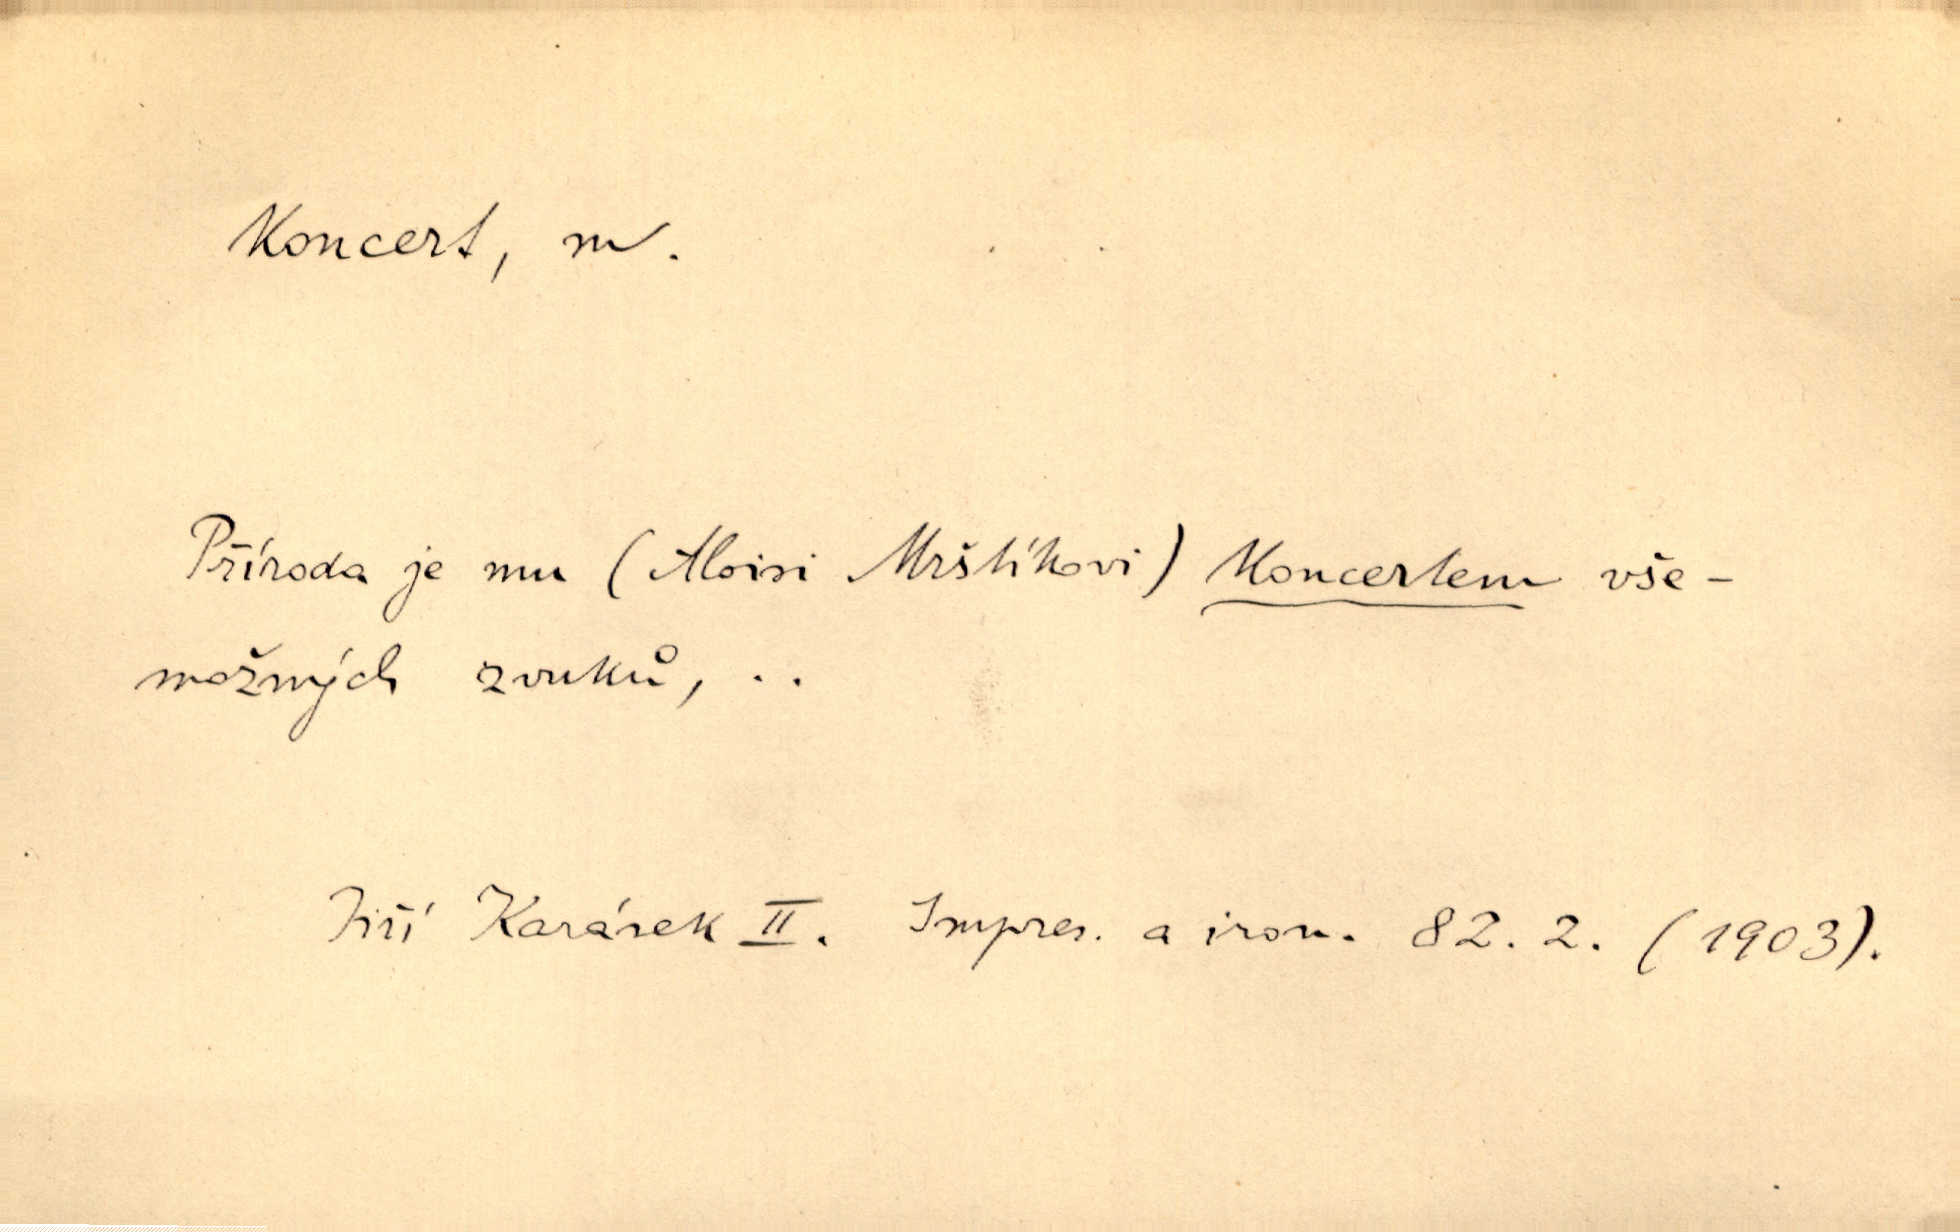 Koncert, m.
Příroda je mu (Aloisi Mrštíkovi) Koncertem vše-
možných zvuků, ..
Jiří Karásek II. Impres. a iron. 82. 2. (1903).